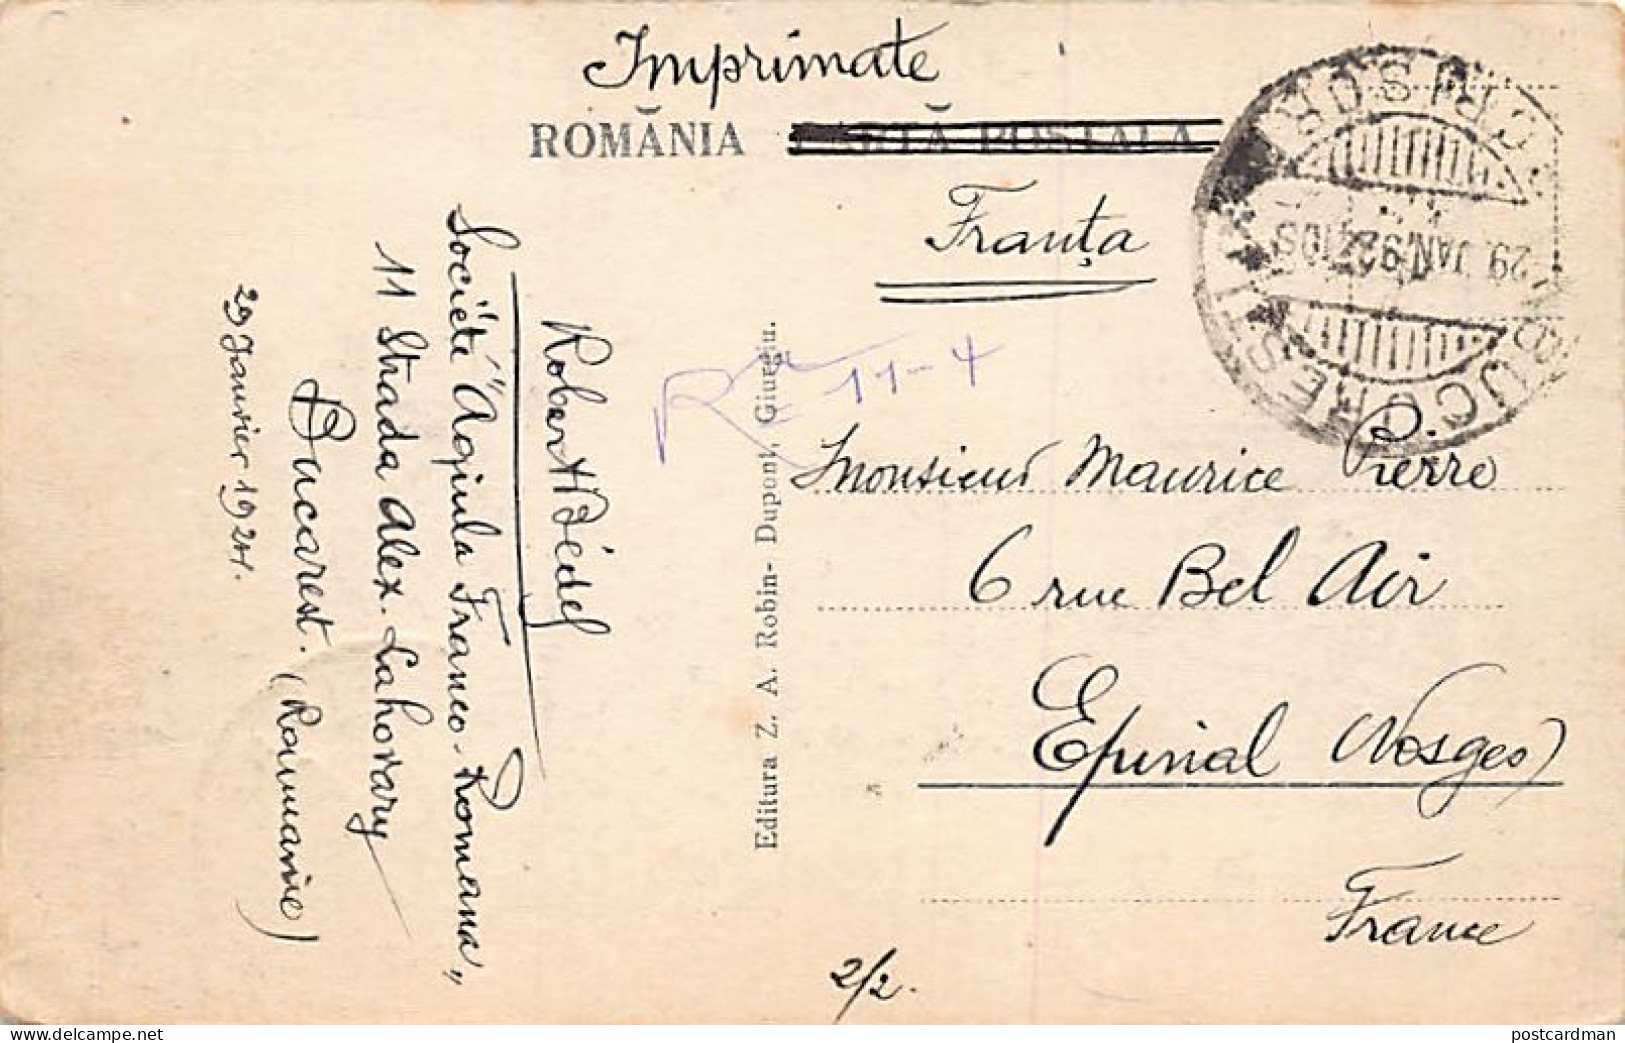 Imprimate
ROMĂNIA CARTĂ POSTALA
Franţa
BUCUREȘTI
29 JAN. 92
Robert Bédel
Société "Aquila Franco-Romana"
11 Strada Alex. Lahovary
Bucarest. (Roumanie)
29 Janvier 1924.
11-4
Editura Z. A. Robin- Dupont, Giurgiu.
Monsieur Maurice Pierre
6 rue Bel Air
Epinal (Vosges)
France
2/2.
delcampe.net
postcardman